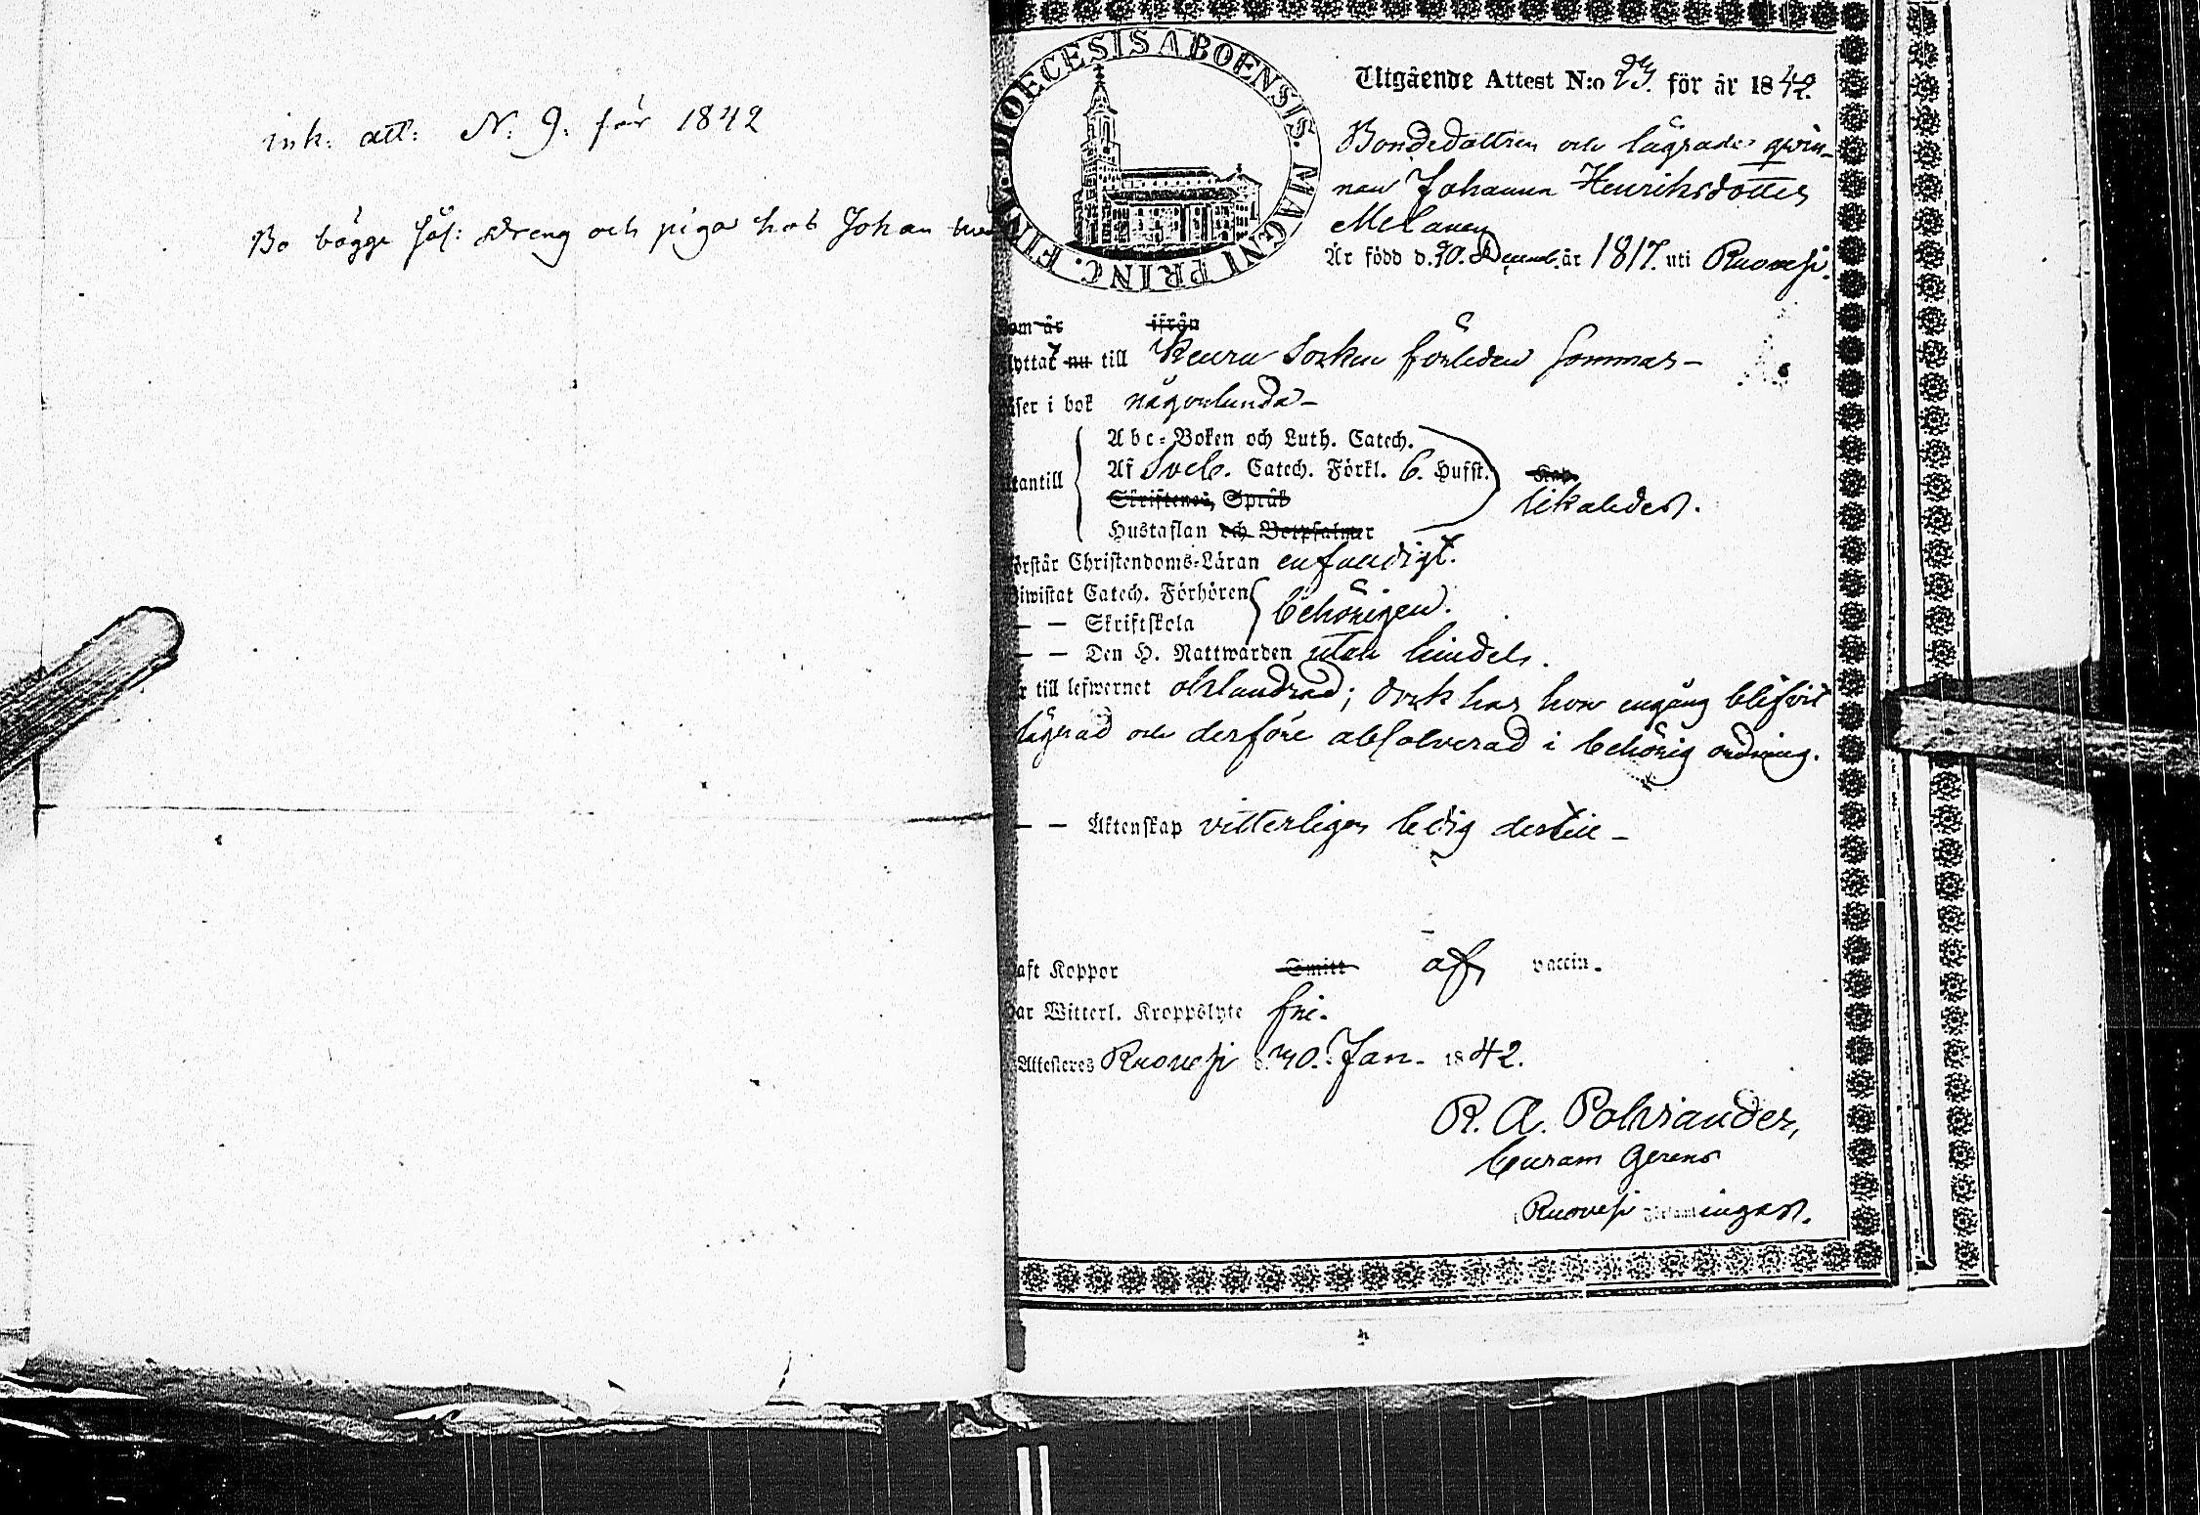 ink: att: N: 9. för 1842
Bo bägge såf: dreng och piga hos Johan
DIOECESIS ABOENSIS. MAGNI PRINC. FINL.
Utgående Attest N:o 23. för år 1842.
Bondedottren och lägrade qvin-
nan Johanna Henriksdotter
Melanen
Är född d. 30. Decemb. år 1817. uti Ruovesi.
som är ifrån
flyttat nu till Keuru Socken förleden sommar-
läser i bok någorlunda-
Abc-Boken och Luth. Catech.
utantill Af Sveb. Catech. Förkl. 6. Hufst. Kap.
Skriftenes Språk likaledes.
Hustaflan och Botpsalmer
Förstår Christendoms-Läran enfaldigt.
Biwistat Catech. Förhören behörigen.
— — Skriftskola
— — Den H. Nattwarden utan hinder.
Är till lefwernet oklandrad; dock har hon engång blifvit
lägrad och derföre absolverad i behörig ordning.
— — Äktenskap vitterligen ledig dertill -
Haft Koppor Smitt af vaccin.
Har Witterl. Kroppslyte fri.
Attesteres Ruovesi d. 30. Jan. 1842.
R. A. Polviander,
Curam Gerens
i Ruovesi Församlingar.